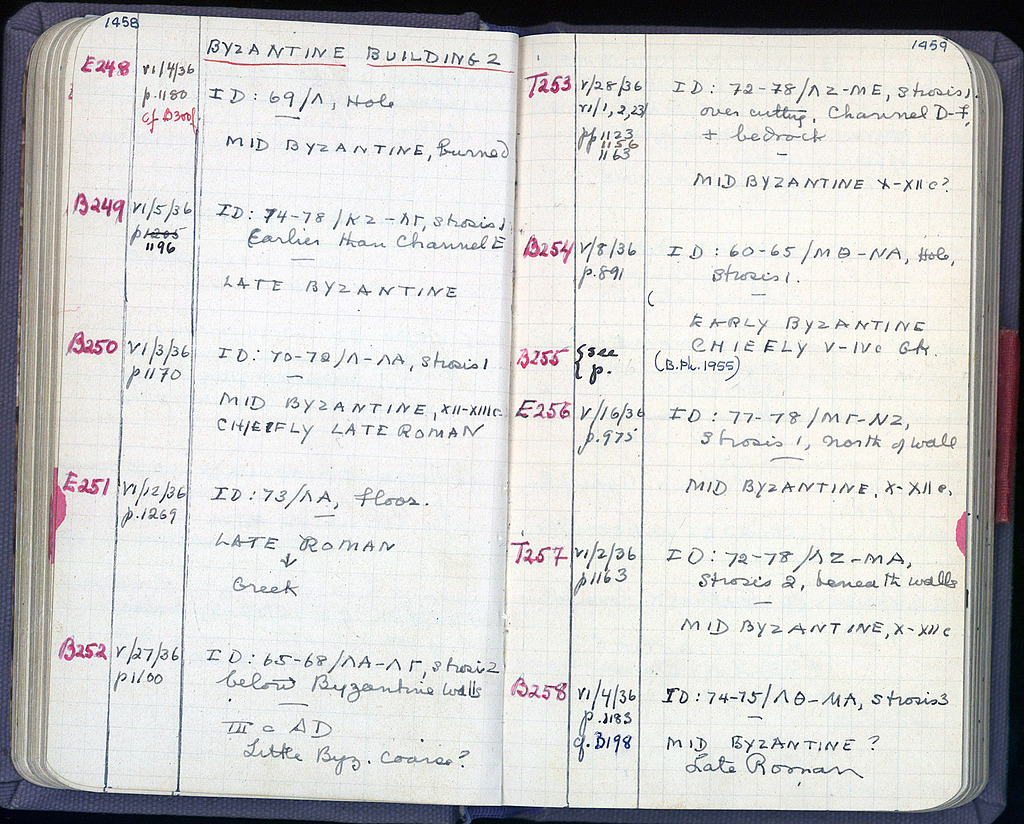 1458
BYZANTINE BUILDING 2
E248 VI/4/36 ID: 69/Λ, Hole
p.1180
cf B300
MID BYZANTINE, Burned
B249 VI/5/36 ID: 74-78/KZ-ΛΓ, strosis 1
p1205 Earlier than Channel E
1196
LATE BYZANTINE
B250 VI/3/36 ID: 70-72/Λ-ΛA, strosis 1
p1170
MID BYZANTINE, XII-XIIIc
CHIEFLY LATE ROMAN
E251 VI/12/36 ID: 73/ΛA, floor.
p.1269
LATE ROMAN
↓
Greek
B252 V/27/36 ID: 65-68/ΛA-ΛΓ, strosis 2
p1100 below Byzantine walls
III c AD
Little Byz. coarse?
1459
T253 V/28/36 ID: 72-78/ΛZ-ME, strosis 1.
VI/1,2,23/ over cutting, Channel D-F,
pp 1123 + bedrock
1156
1163
MID BYZANTINE X-XII c?
B254 V/8/36 ID: 60-65/MΘ-NA, Hole,
p.891 strosis 1.
EARLY BYZANTINE
CHIEFLY V-IVc Gk.
B255 {see (B.Ph. 1955)
p.
E256 V/16/36 ID: 77-78/MΓ-NZ,
p.975 strosis 1, north of wall
MID BYZANTINE, X-XII c.
T257 VI/2/36 ID: 72-78/ΛZ-MA,
p1163 strosis 2, beneath walls
MID BYZANTINE, X-XII c
B258 VI/4/36 ID: 74-75/ΛΘ-MA, strosis 3
p.1183
cf. B198 MID BYZANTINE ?
Late Roman